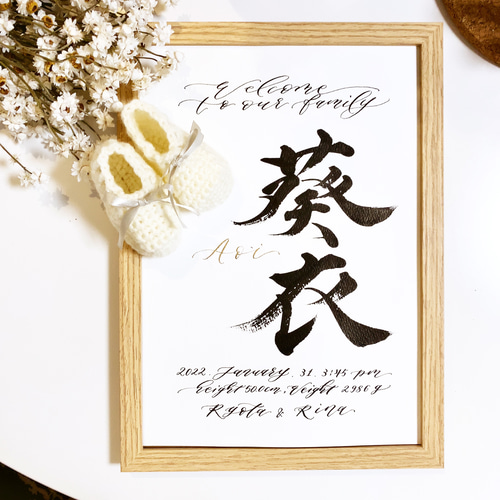 Welcome
to our family
葵衣
Aoi
2022. January. 31. 3:45 pm
height 50cm, Weight 2986 g
Ryota & Rina